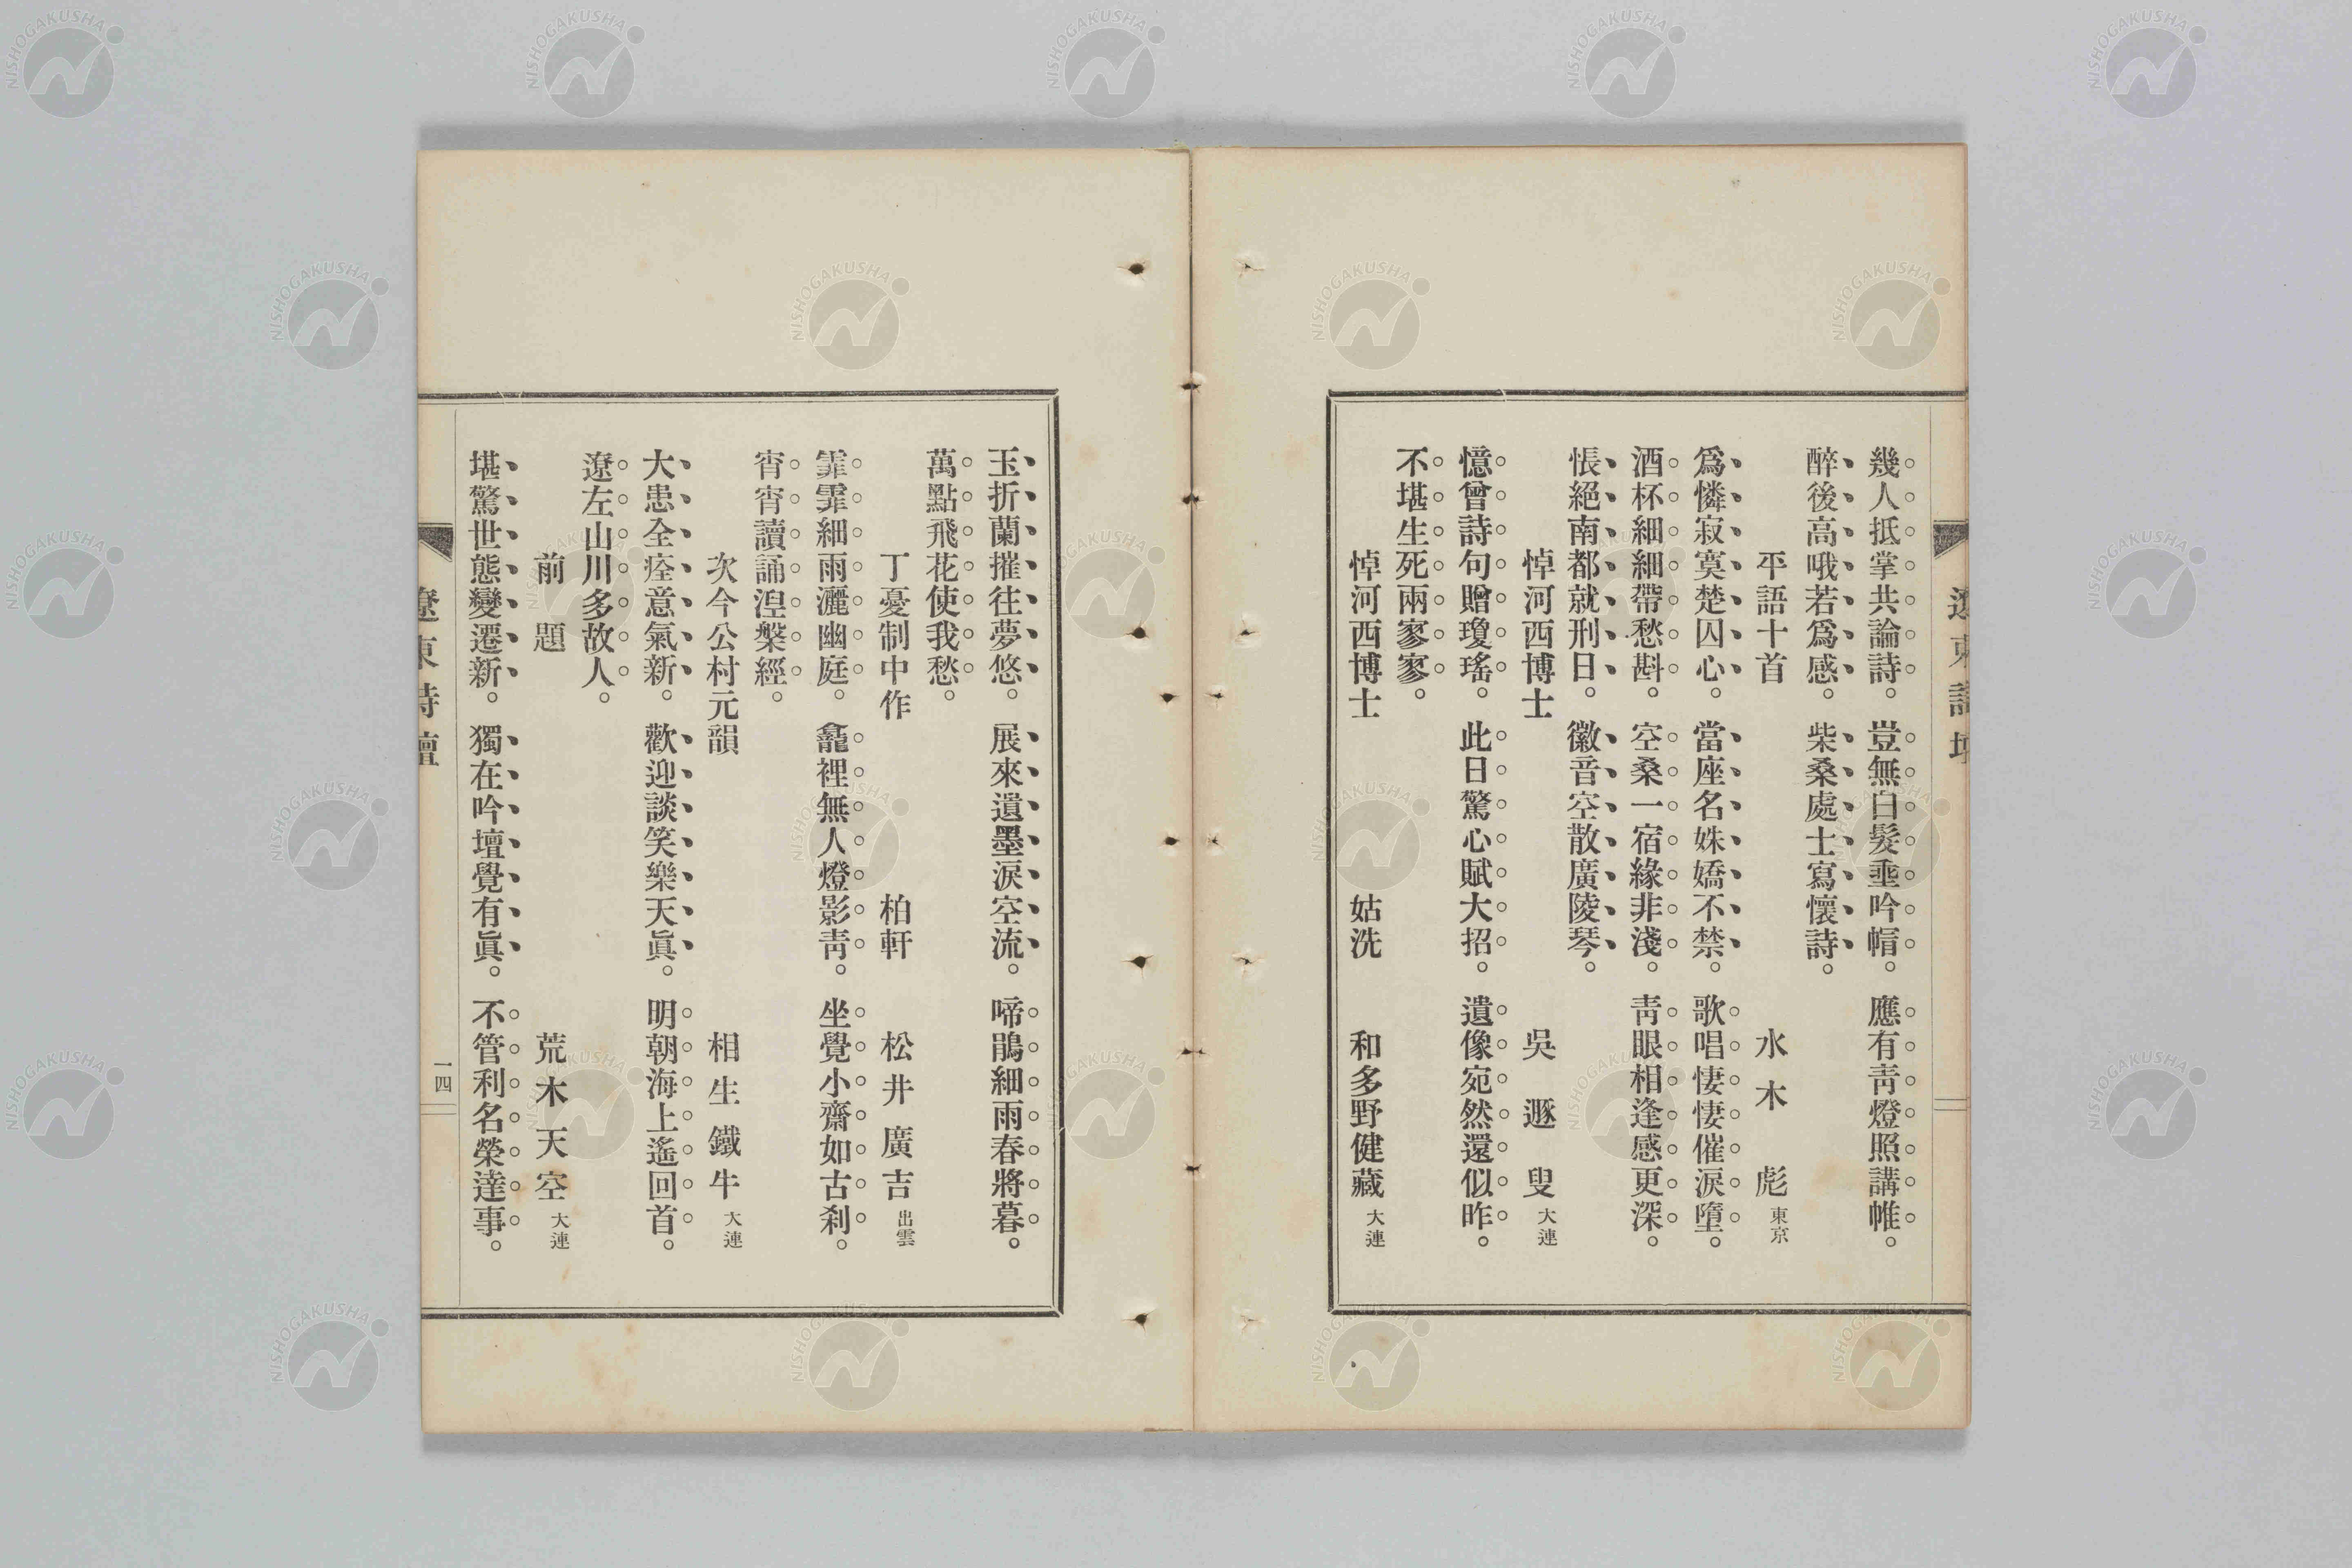 幾人抵掌共論詩。豈無白髮垂吟帽。應有靑燈照講帷。
醉後高哦若爲感。柴桑處士寫懷詩。
平語十首 水木彪 東京
爲憐寂寞楚囚心。當座名姝嬌不禁。歌唱悽悽催淚墮。
酒杯細細帶愁斟。空桑一宿緣非淺。靑眼相逢感更深。
悵絕南都就刑日。徽音空散廣陵琴。
悼河西博士 吳遯叟 大連
憶曾詩句贈瓊瑤。此日驚心賦大招。遺像宛然還似昨。
不堪生死兩寥寥。
悼河西博士 姑洗 和多野健藏 大連
玉折蘭摧往夢悠。展來遺墨淚空流。啼鵑細雨春將暮。
萬點飛花使我愁。
丁憂制中作 柏軒 松井廣吉 出雲
霏霏細雨灑幽庭。龕裡無人燈影靑。坐覺小齋如古刹。
宵宵讀誦涅槃經。
次今公村元韻 相生鐵牛 大連
大患全痊意氣新。歡迎談笑樂天眞。明朝海上遙回首。
遼左山川多故人。
前題 荒木天空 大連
堪驚世態變遷新。獨在吟壇覺有眞。不管利名榮達事。
遼東詩壇
一四
NISHOGAKUSHA